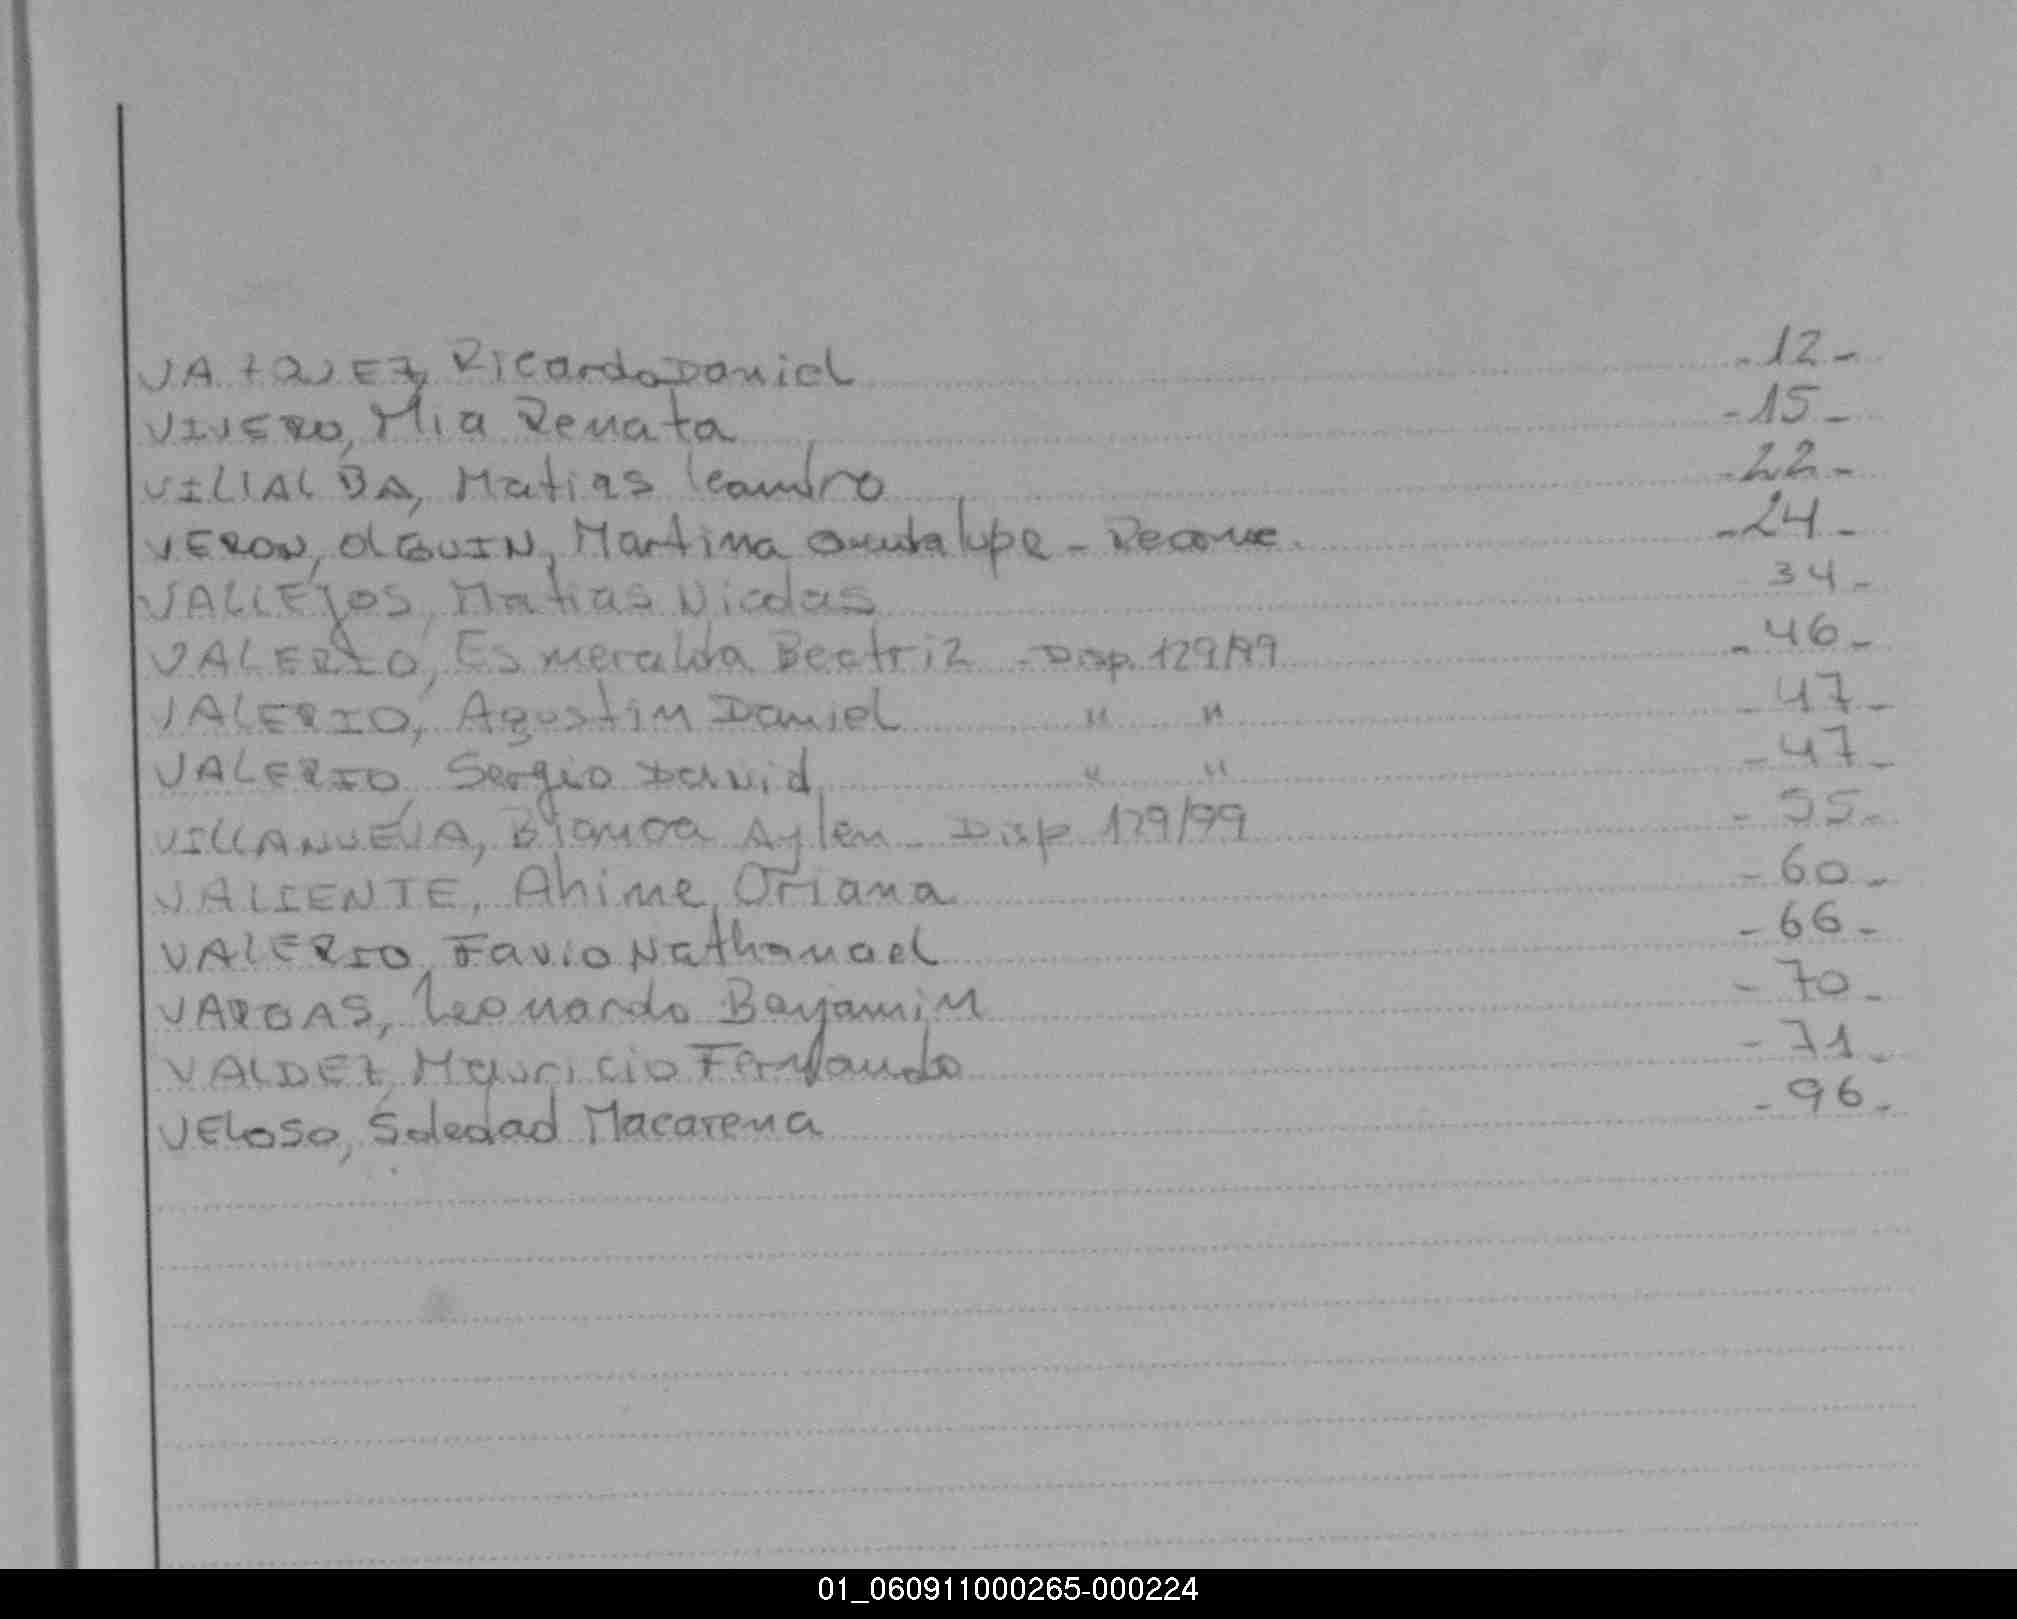 VAZQUEZ, Ricardo Daniel -12-
VIVERO, Mia Renata -15-
VILLALBA, Matias Leandro -22-
VERON, OLGUIN, Martina Guadalupe - Reconoc. -24-
VALLEJOS, Matias Nicolas 34-
VALERIO, Esmeralda Beatriz - Disp. 129/99 -46-
VALERIO, Agustin Daniel " " -47-
VALERIO, Sergio David " " -47-
VILLANUEVA, Bianca Aylen - Disp 129/99 -55-
VALIENTE, Ahime Oriana -60-
VALERIO, Favio Nathanael -66-
VARGAS, Leonardo Benjamin -70-
VALDEZ, Mauricio Fernando -71-
VELOSO, Soledad Macarena -96-
01_060911000265-000224